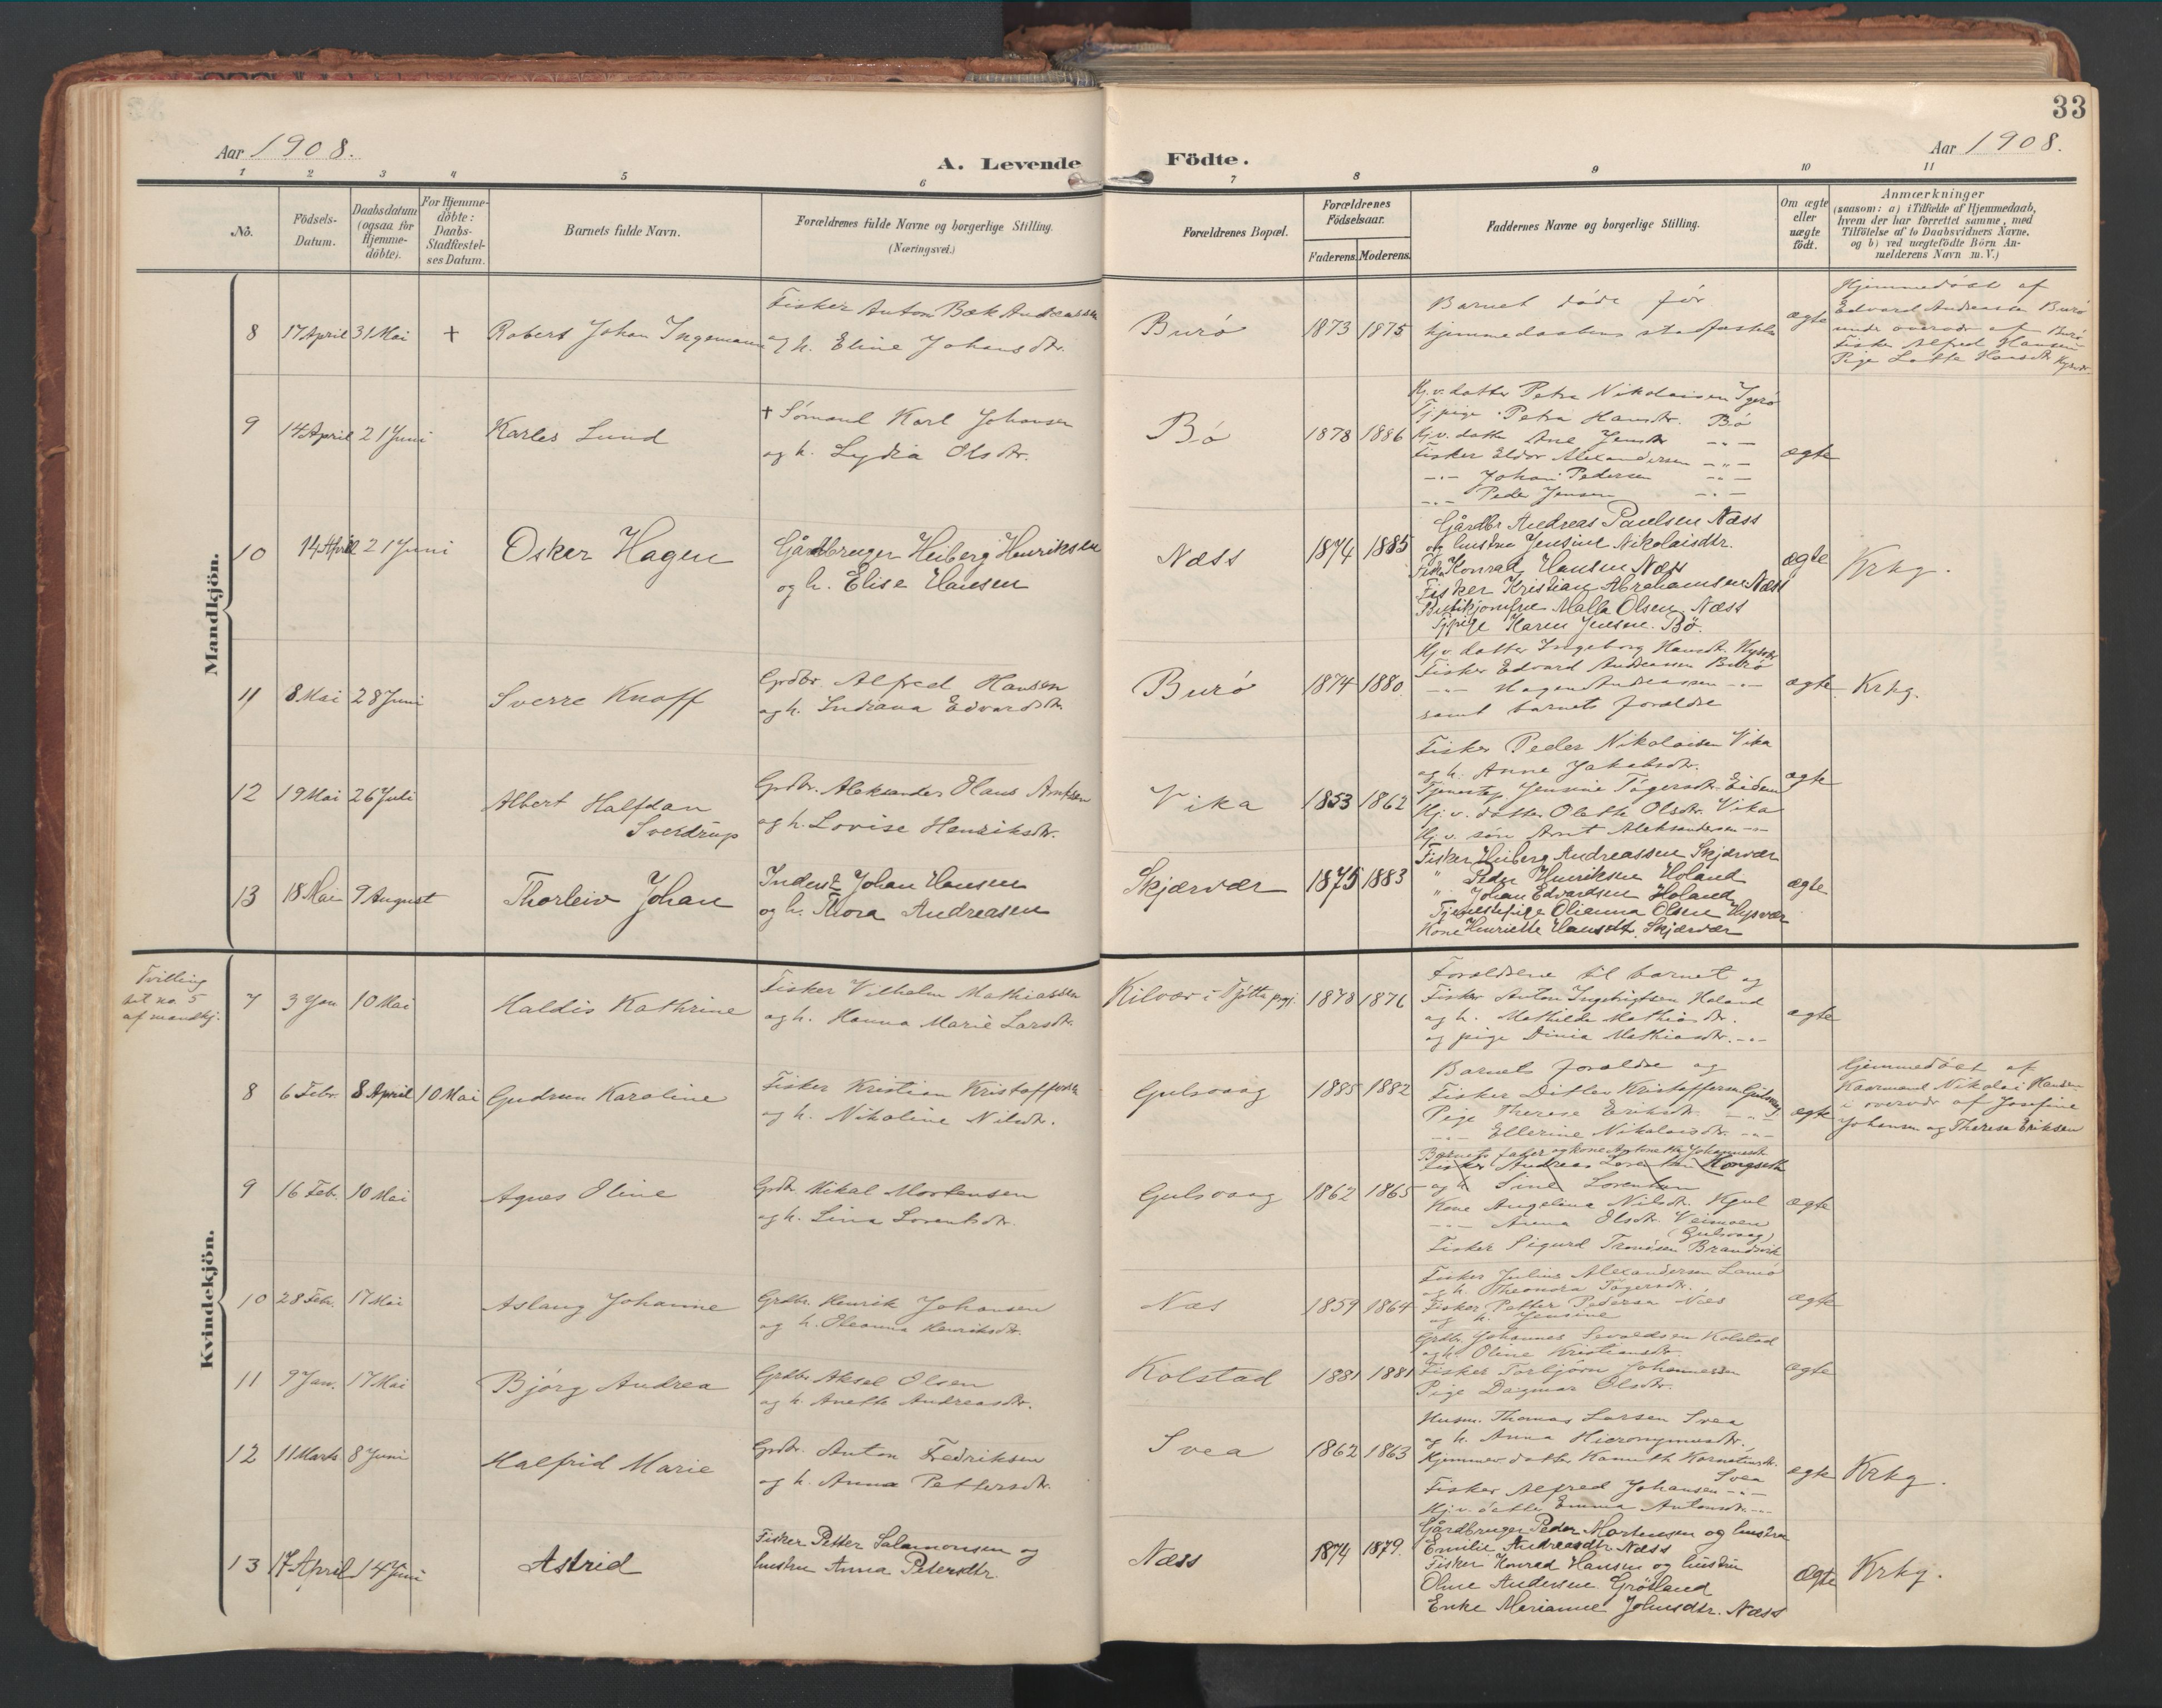 33
Aar 1908.
A. Levende Födte.
Aar 1908.
1 2 3 4 5 6 7 8 9 10 11
No.
Födsels-Datum.
Daabsdatum (ogsaa for Hjemme-döbte).
For Hjemme-döbte: Daabs-Stadfæstel-ses Datum.
Barnets fulde Navn.
Forældrenes fulde Navne og borgerlige Stilling.
(Næringsvei.)
Forældrenes Bopæl.
Forældrenes Födselsaar.
Faderens. Moderens.
Faddernes Navne og borgerlige Stilling.
Om ægte eller uægte födt.
Anmærkninger
(saasom: a) i Tilfælde af Hjemmedaab,
hvem der har forrettet samme, med
Tilföielse af to Daabsvidners Navne,
og b) ved uægtefödte Börn An-
melderens Navn m.V.)
Mandkjön.
8 17 April 31 Mai + Robert Johan Ingemann
Fisker Anton Bæk Andreassen
og h. Eline Johansdtr.
Burö 1873 1875
Barnet döde för
hjemmedaabens stadfæstelse
ægte
Hjemmedöbt af
Edvard Andreassen Burö
under overvær af
Fisker Alfred Hansen Burö
Pige Lotte Hansdtr.
9 14 April 21 Juni Karles Lund
+ Sömand Karl Johansen
og h. Lydia Olsdtr.
Bö 1878 1886
Hj.v. datter Petra Nikolaisen Igerö
Tj.pige Petra Hansdtr. Bö
Hj.v. datter Ane Jensdtr. -"-
Fisker Eldor Alexandersen -"-
-"- Johan Pedersen -"-
-"- Peder Jensen -"-
ægte
10 14 April 21 Juni Osker Hagen
Gårdbruger Heiberg Henriksen
og h. Elise Hansen
Næss 1874 1885
Gårdbr Andreas Paulsen Næss
og hustru Jensine Nikolaisdtr.
Fisker Konrad Hansen Næss
Fisker Kristian Abrahamsen Næss
Butikjomfrue Malla Olsen Næss
Tjpige Karen Jensen. Bö.
ægte Krkg.
11 8 Mai 28 Juni Sverre Knoff
Grdbr. Alfred Hansen
og h. Indiana Edvardsdtr.
Burö 1874 1880
Hj.v. datter Ingeborg Hansdtr.
Fisker Edvard Andreassen Burö
-"- Hagen Andreassen -"-
samt barnets forældre
ægte Krkg.
12 19 Mai 26 Juli Albert Halfdan
Sverdrup
Grdbr. Aleksander Olaus Arntsen
og h. Lovise Henriksdtr.
Vika 1853 1862
Fisker Peder Nikolaisen Vika
og h. Anne Jakobsdtr.
Tjenestep. Jensine Tögersdtr. Eidem
Hj.v. datter Olette Olsdtr. Vika
Hj.v. sön Arnt Aleksandersen -"-
ægte
13 18 Mai 9 August Thorleiv Johan
Inderst Johan Hansen
og h. Thora Andreasen
Skjærvær 1875 1883
Fisker Heiberg Andreassen Skjærvær
" Peder Henriksen Holand
" Johan Edvardsen Holand
Tjenestepige Olianna Olsen Hysvær
Kone Henriette Hansdt. Skjærvær
ægte
Kvindekjön.
Tvilling
til no. 5
af mandkj.
7 3 Jan 10 Mai Haldis Kathrine
Fisker Vilhelm Mathiassen
og h. Hanna Marie Larsdtr.
Kilvær i Tjötta pgj. 1878 1876
Forældrene til barnet og
Fisker Anton Ingebrigtsen Holand
og h. Mathilde Mathiasdtr.
og pige Dinia Mathiasdtr. -"-
ægte
8 6 Febr. 8 April 10 Mai Gudrun Karoline
Fisker Kristian Kristoffersen
og h. Nikoline Nilsdtr.
Gulsvaag 1885 1882
Barnets forældre og
Fisker Ditlev Kristoffersen Gulsvaag
Pige Therese Eriksdtr. -"-
-"- Ellerine Nikolaisdtr. -"-
ægte
Hjemmedöbt af
Kaarmand Nikolai Hansen
i overvær af Josefine
Johansen og Therese Eriksen
9 16 Feb. 10 Mai Agnes Oline
Grdbr. Mikal Mortensen
og h. Lina Lorentsdtr.
Gulsvaag 1862 1865
Barnets fader og kone Antonette Johannesdtr.
Fisker Andreas Lorentsen Kongseth
og h. Sine Lorentsen
Kone Angelina Nilsdtr. Kgul
-"- Anna Olsdtr. Veimoen
(Gulsvaag)
Fisker Sigurd Tronösen Brandsvik
ægte
10 28 Feb. 17 Mai Aslaug Johanne
Grdbr. Henrik Johansen
og h. Oleanna Henriksdtr.
Næs 1859 1864
Fisker Julius Alexandersen
og h. Theonora Tögersdtr.
Fisker Petter Pedersen Næs
og h. Jensine
ægte
11 9 Jan. 17 Mai Bjórg Andrea
Grdbr. Aksel Olsen
og h. Anette Andreasdtr.
Kolstad 1881 1881
Grdbr. Johannes Sevaldsen Kolstad
og h. Oline Kristiansdtr.
Fisker Torbjörn Johannessen
Pige Dagmar Olsdtr.
ægte
12 11 Marts 8 Juni Halfrid Marie
Grdbr. Anton Fredriksen
og h. Anna Pettersdtr.
Svea 1862 1863
Husm. Thomas Larsen Svea
og h. Anna Hieronymusdtr.
Hjemmev. datter
Svea
Fisker Alfred Johansen -"-
Hj.v. datter Emma Antonsdtr. -"-
ægte Krkg.
13 17 April 14 Juni Astrid
Fisker Petter Salamonsen og
hustru Anna Petersdtr.
Næss 1874 1879.
Gårdbruger Peder Mortensen og hustru
Emilie Andreasdtr. Næss
Fisker Konrad Hansen og hustru
Oline Andersen Grötland
Enke Marianne Johnsdtr. Næss
Ægte Krkg.